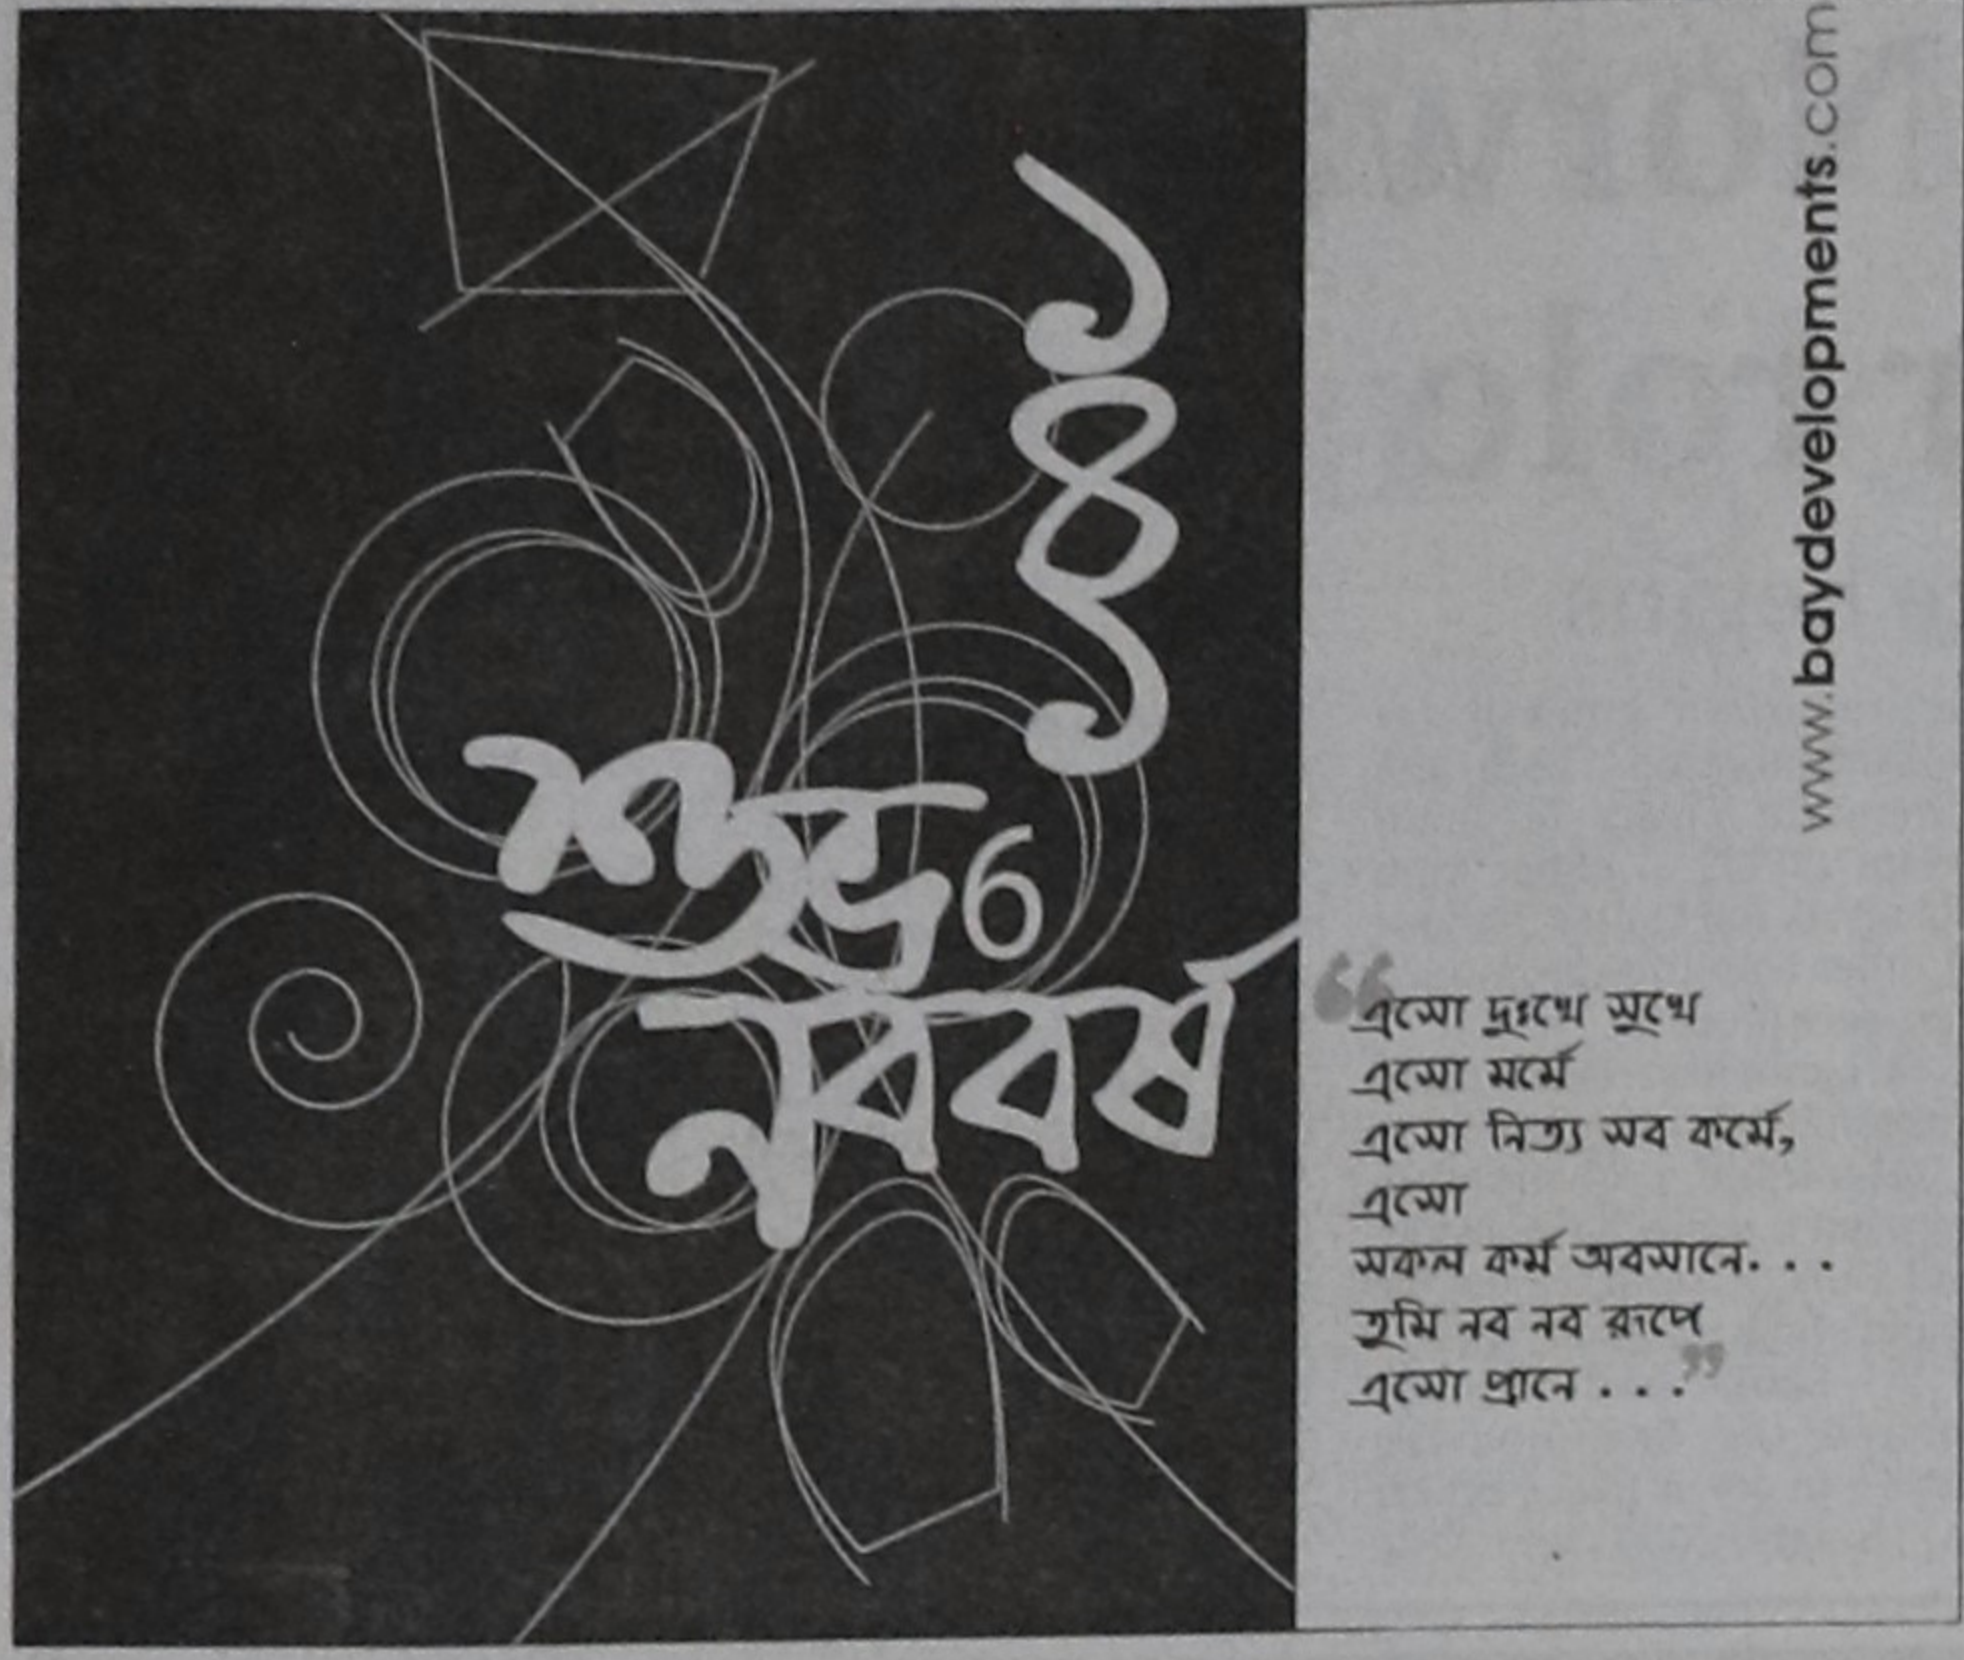 ১৪১
শুভ 6
নববর্ষ
www.baydevelopments.com
“এসো দুঃখে সুখে
এসো মর্মে
এসো নিত্য সব কর্মে,
এসো
সকল কর্ম অবসানে. . .
তুমি নব নব রূপে
এসো প্রানে . . .”